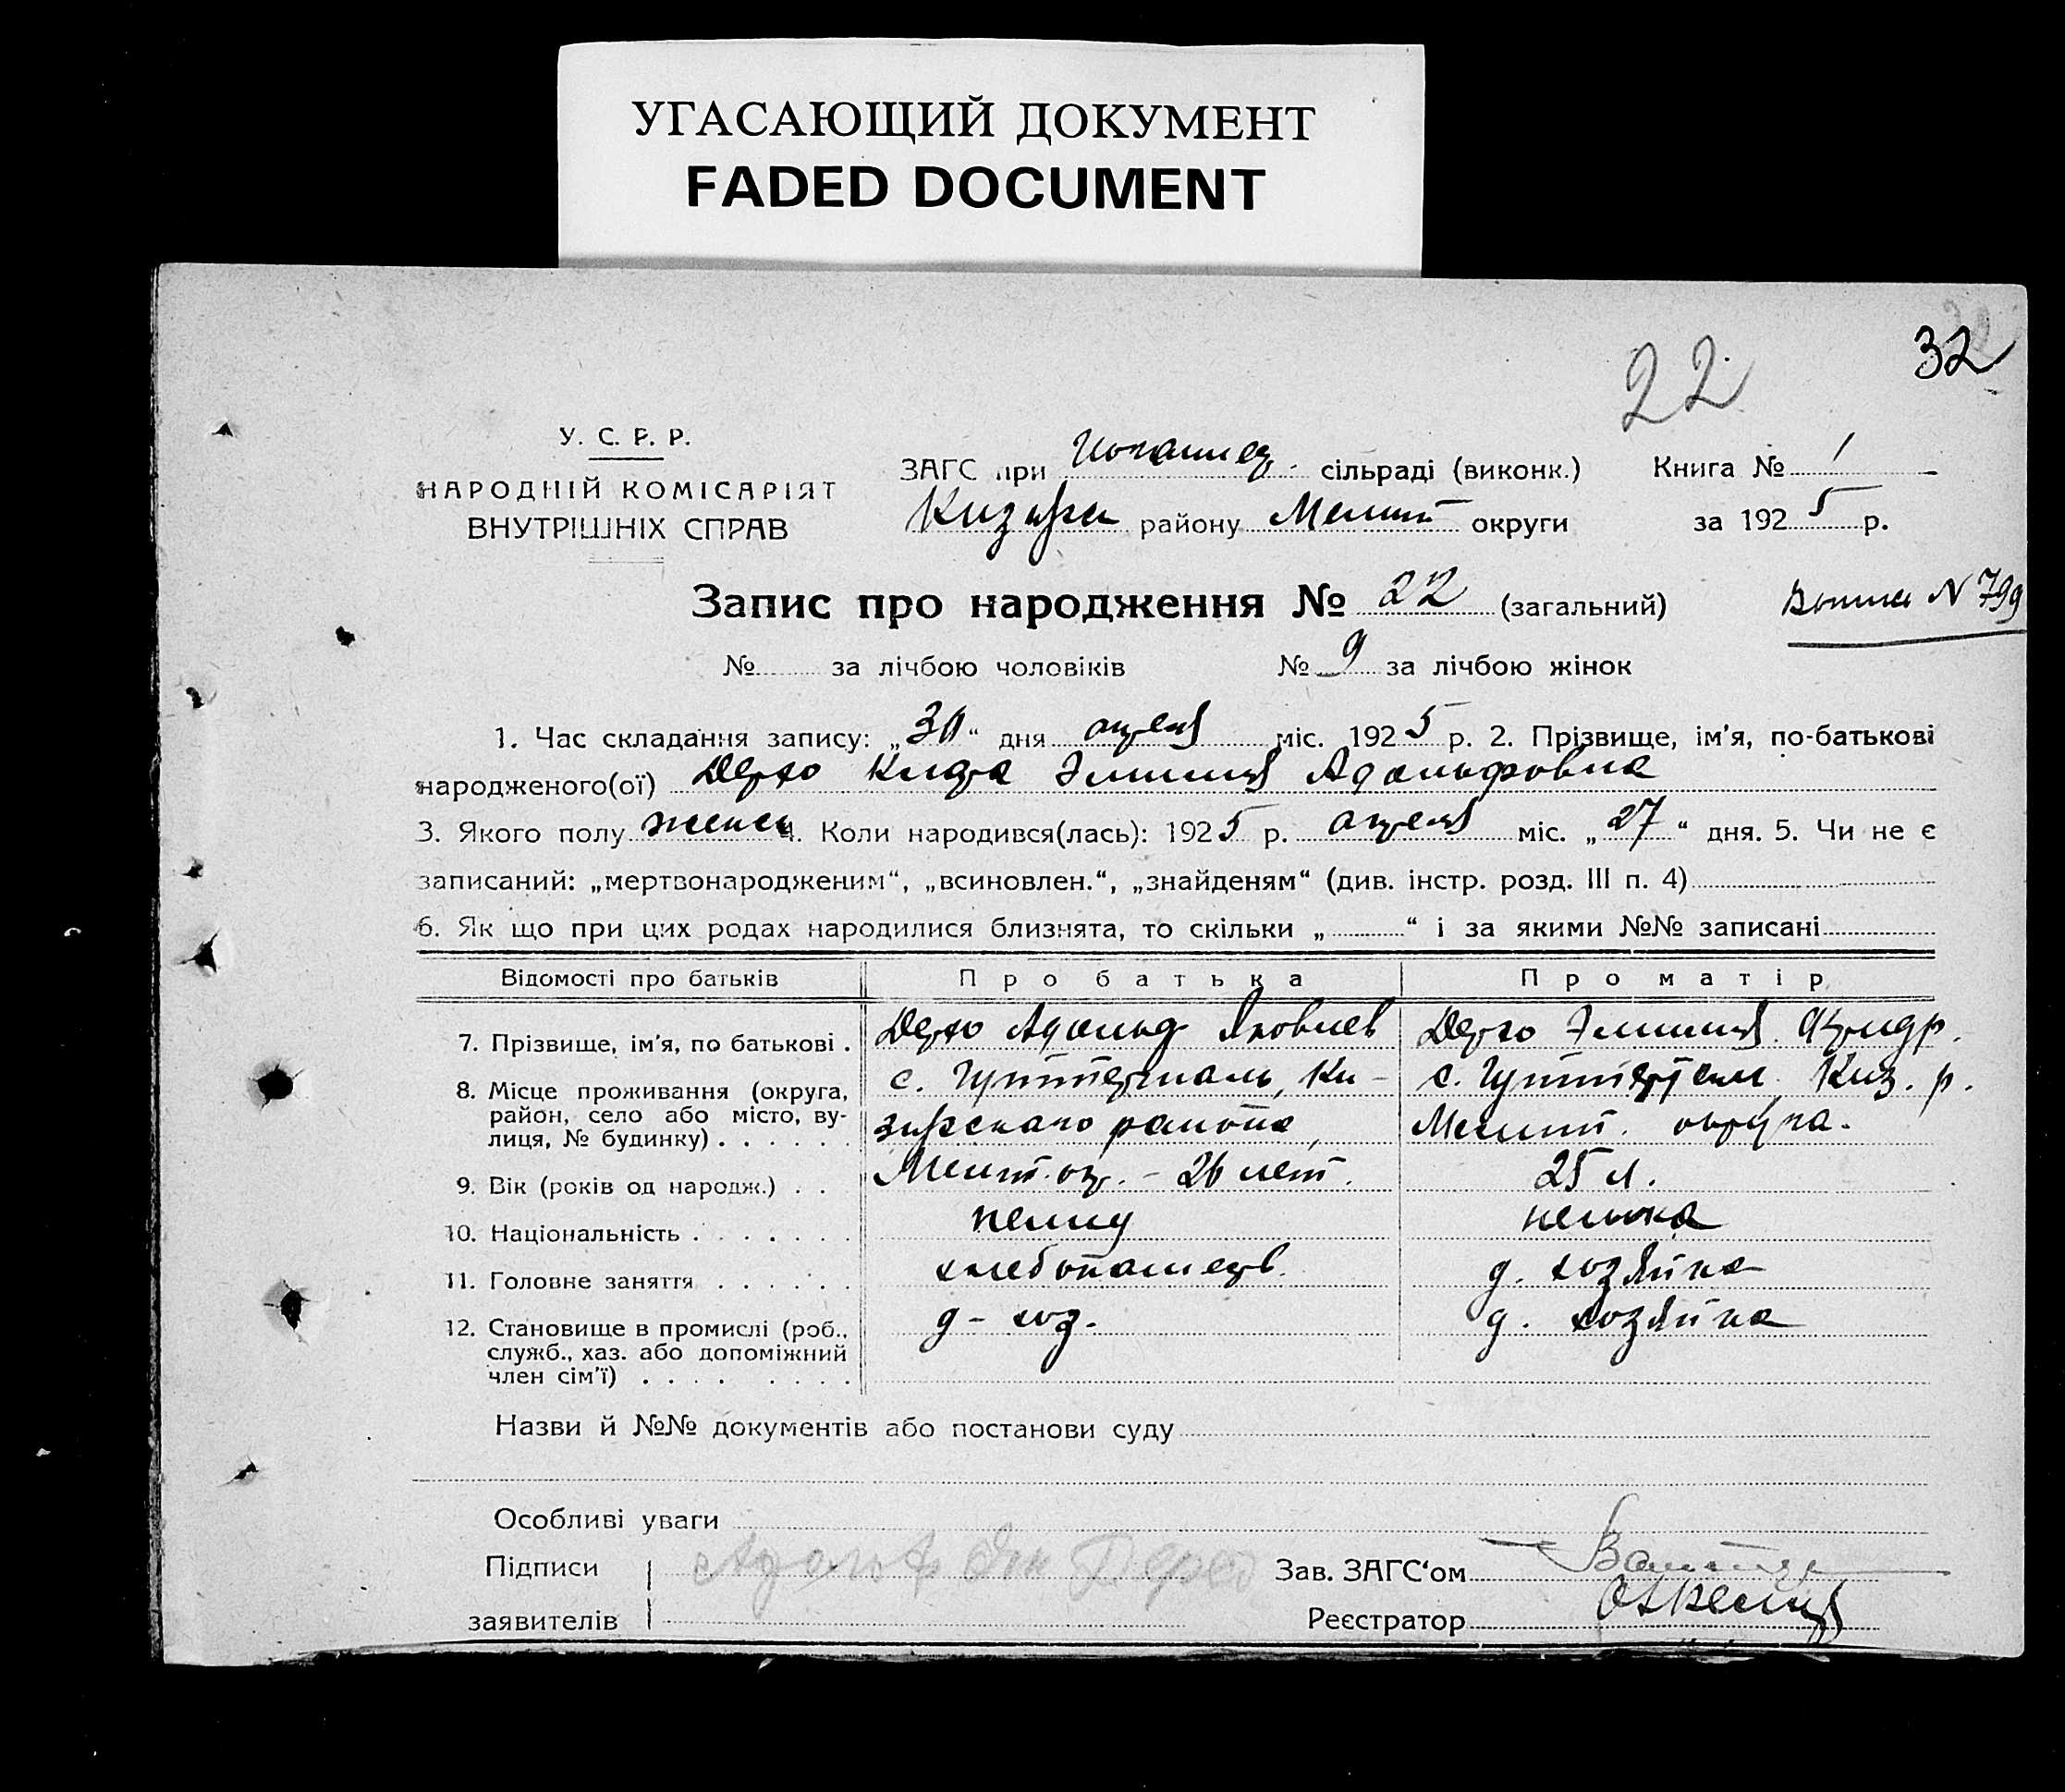 УГАСАЮЩИЙ ДОКУМЕНТ
FADED DOCUMENT
32
22
У. С. Р. Р.
НАРОДНІЙ КОМІСАРІЯТ
ВНУТРІШНІХ СПРАВ
ЗАГС при сільраді (виконк.) Книга № 1
району Мелит округи за 1925 р.
Запис про народження № 22 (загальний) N 799
№ за лічбою чоловіків № 9 за лічбою жінок
1. Час складання запису: „30“ дня апреля міс. 1925 р. 2. Прізвище, ім'я, по-батькові
народженого(ої) Адольфовна
3. Якого полу женск 4. Коли народився(лась): 1925 р. апреля міс. „27“ дня. 5. Чи не є
записаний: „мертвонародженим“, „всиновлен.“, „знайденям“ (див. інстр. розд. III п. 4)
6. Як що при цих родах народилися близнята, то скільки „ “ і за якими №№ записані
Відомості про батьків Про батька Про матір
7. Прізвище, ім'я, по батькові . Адольф Яковлев
8. Місце проживання (округа, район, село або місто, вулиця, № будинку) . . . . . . с. Гуттерталь, Ки-
с. Гуттерталь Киз. р.
района, Мелит. округа.
9. Вік (років од народж.) . . Мелит. окр. - 26 лет. 25 л.
10. Національність . . . . . . . немец немка
11. Головне заняття . . . . . . хлебопашец д. хозяйка
12. Становище в промислі (роб., служб., хаз. або допоміжний член сім'ї) . . . . . . . . д - хоз. д. хозяйка
Назви й №№ документів або постанови суду
Особливі уваги
Підписи Зав. ЗАГС'ом
заявителів Реєстратор